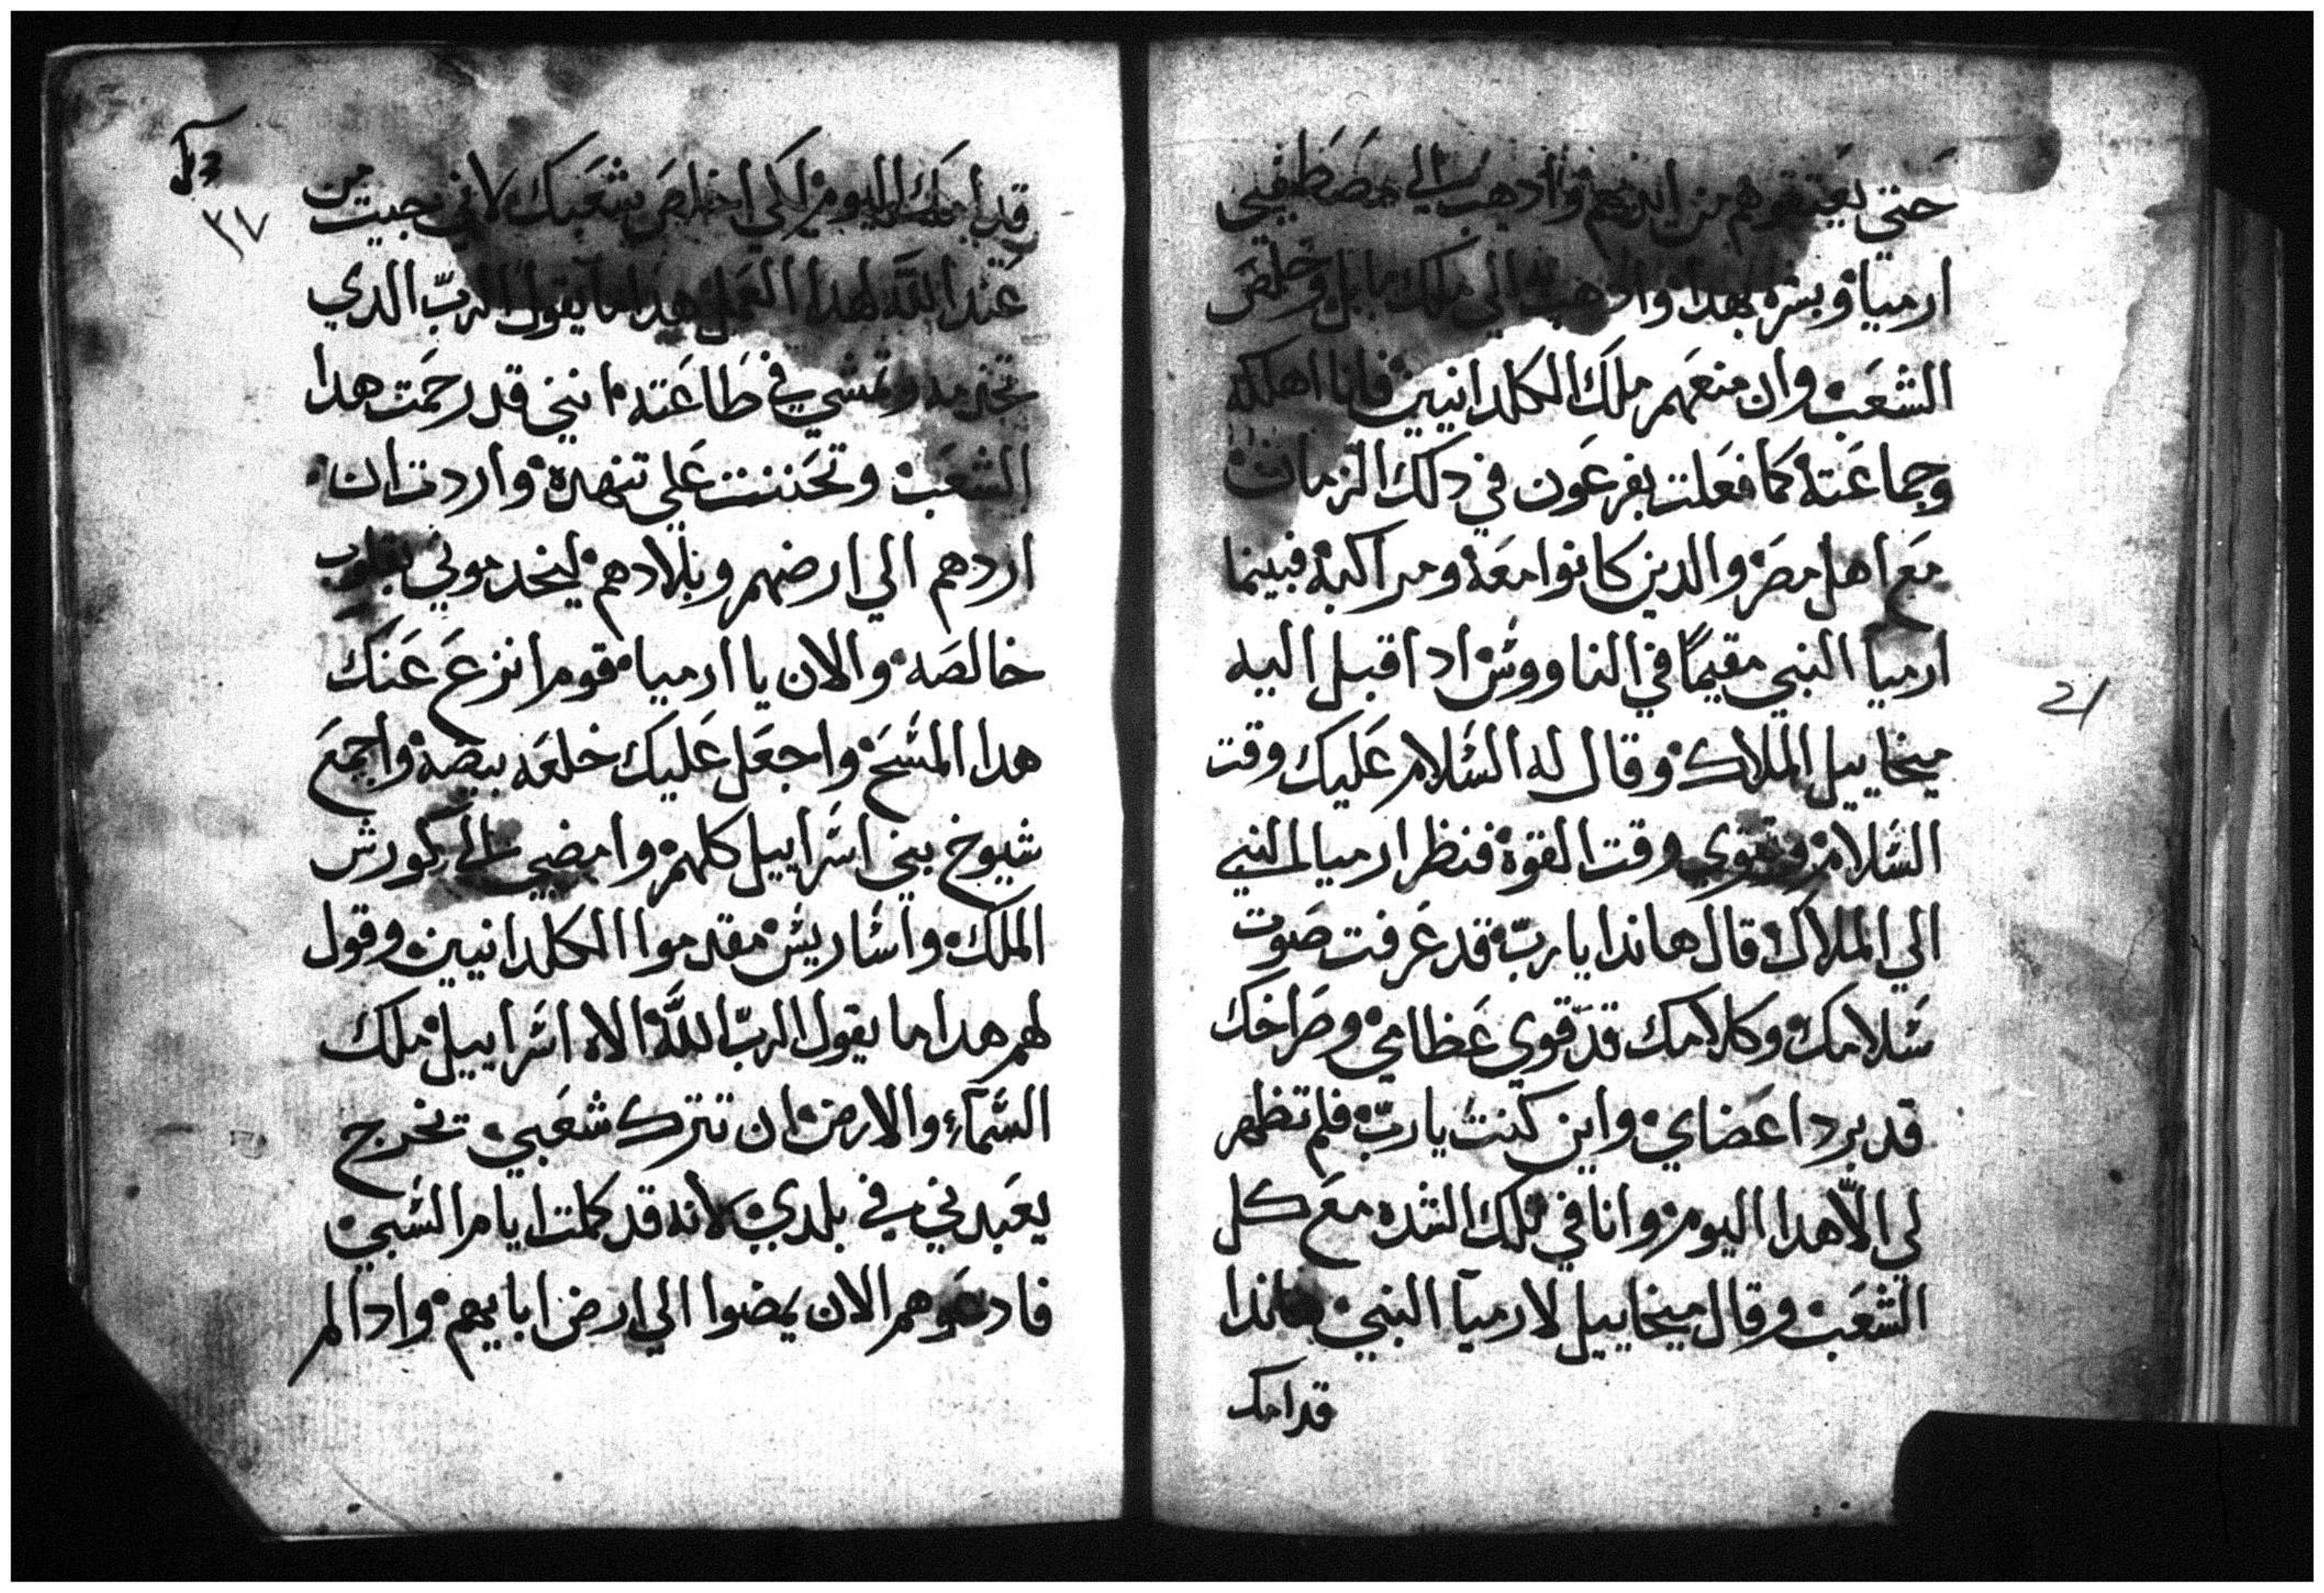 حتي يعتقوهم من ايديهم وادهب الي مصطفيي
ارميا وبشره بهدا وادهب الي ملك بابل وخلص
الشعب وان منعهم ملك الكلدانيين فانا اهلكه
وجماعته كما فعلت بفرعون في دلك الزمان
مع اهل مصر والدين كانوا معه ومراكبه فبينما
ارميا النبي مقيمًا في الناووش اد اقبل اليه
ميخاييل الملاك وقال له السلام عليك وقت
السلام وتقوي وقت القوة فنظر ارميا النبي
الي الملاك قال هاندا يا ربّ قد عرفت صوت
سلامك وكلامك قد قوي عظامي وصراخك
قد برد اعضاي واين كنت يا ربّ فلم تظهر
لي الّا هدا اليوم وانا في تلك الشده مع كل
الشعب وقال ميخاييل لارميا النبي هاندا
قدامك
قدامك اليوم لكي اخلص شعبك لاني جيت من
عند اللّه لهدا العمل هدا ما يقول الربّ الدي
تخدمه وتمشي في طاعته انني قد رحمت هدا
الشعب وتحننت علي تنهده واردت ان
اردهم الي ارضهم وبلادهم ليخدموني بقلوب
خالصه والان يا ارميا قوم انزع عنك
هدا المسح واجعل عليك خلعه بيضه واجمع
شيوخ بني اسراييل كلهم وامضي الي كورش
الملك واشاريش مقدموا الكلدانيين وقول
لهم هدا ما يقول الربّ اللّه الاه اسراييل ملك
السّمآء والارض ان تترك شعبي تخرج
يعبدني في بلدي لانه قد كملت ايام السبي
فادعوهم الان يمضوا الي ارض اباييهم وادا لم
٣٧